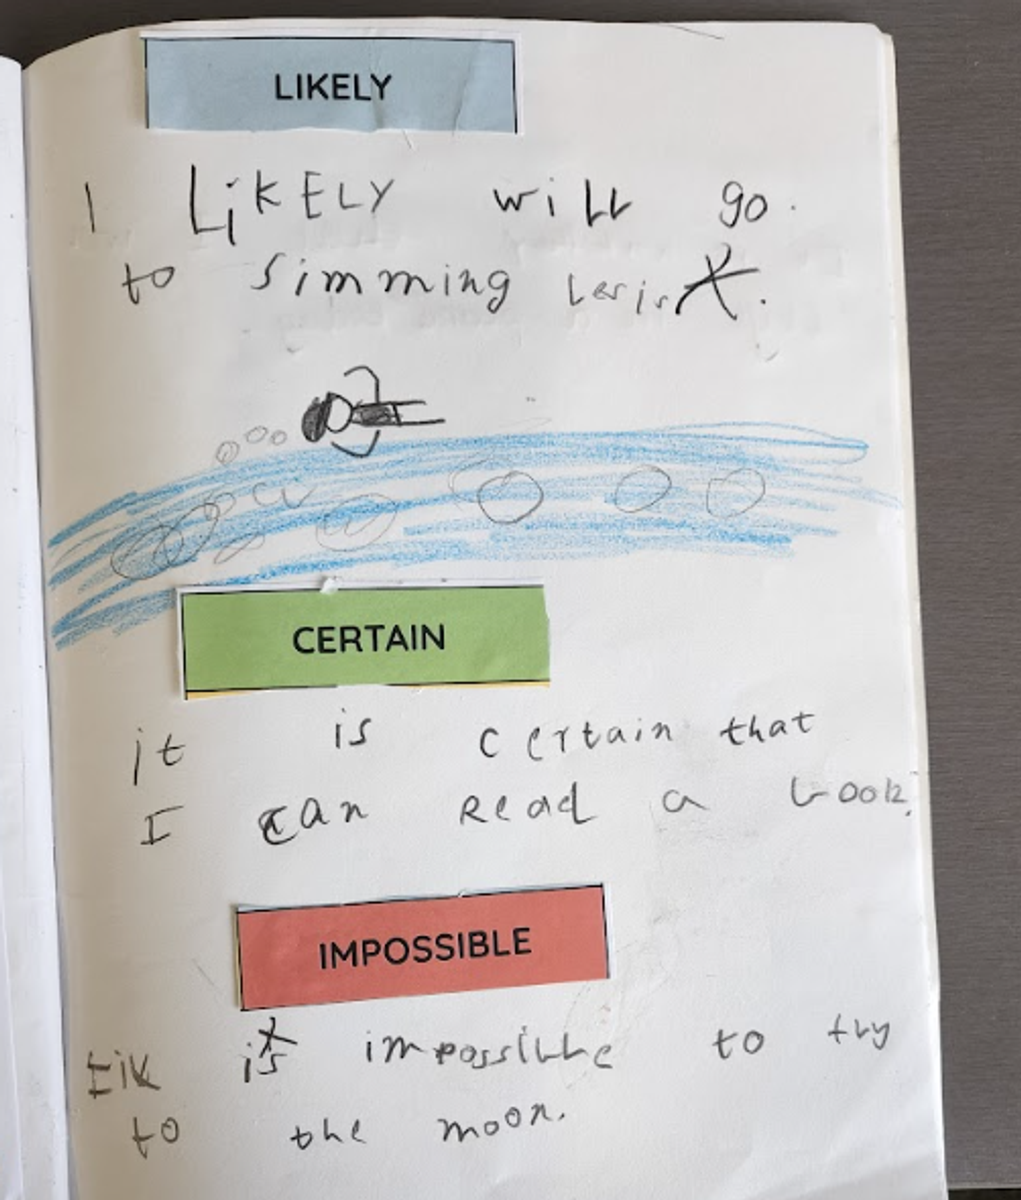 LIKELY
I LiKELY will go.
to simming
CERTAIN
it is certain that
I can Read a book.
IMPOSSIBLE
is impossible to
to the moon.